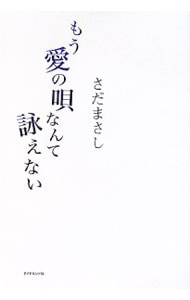 もう愛の唄なんて詠えない
さだまさし
ダイヤモンド社